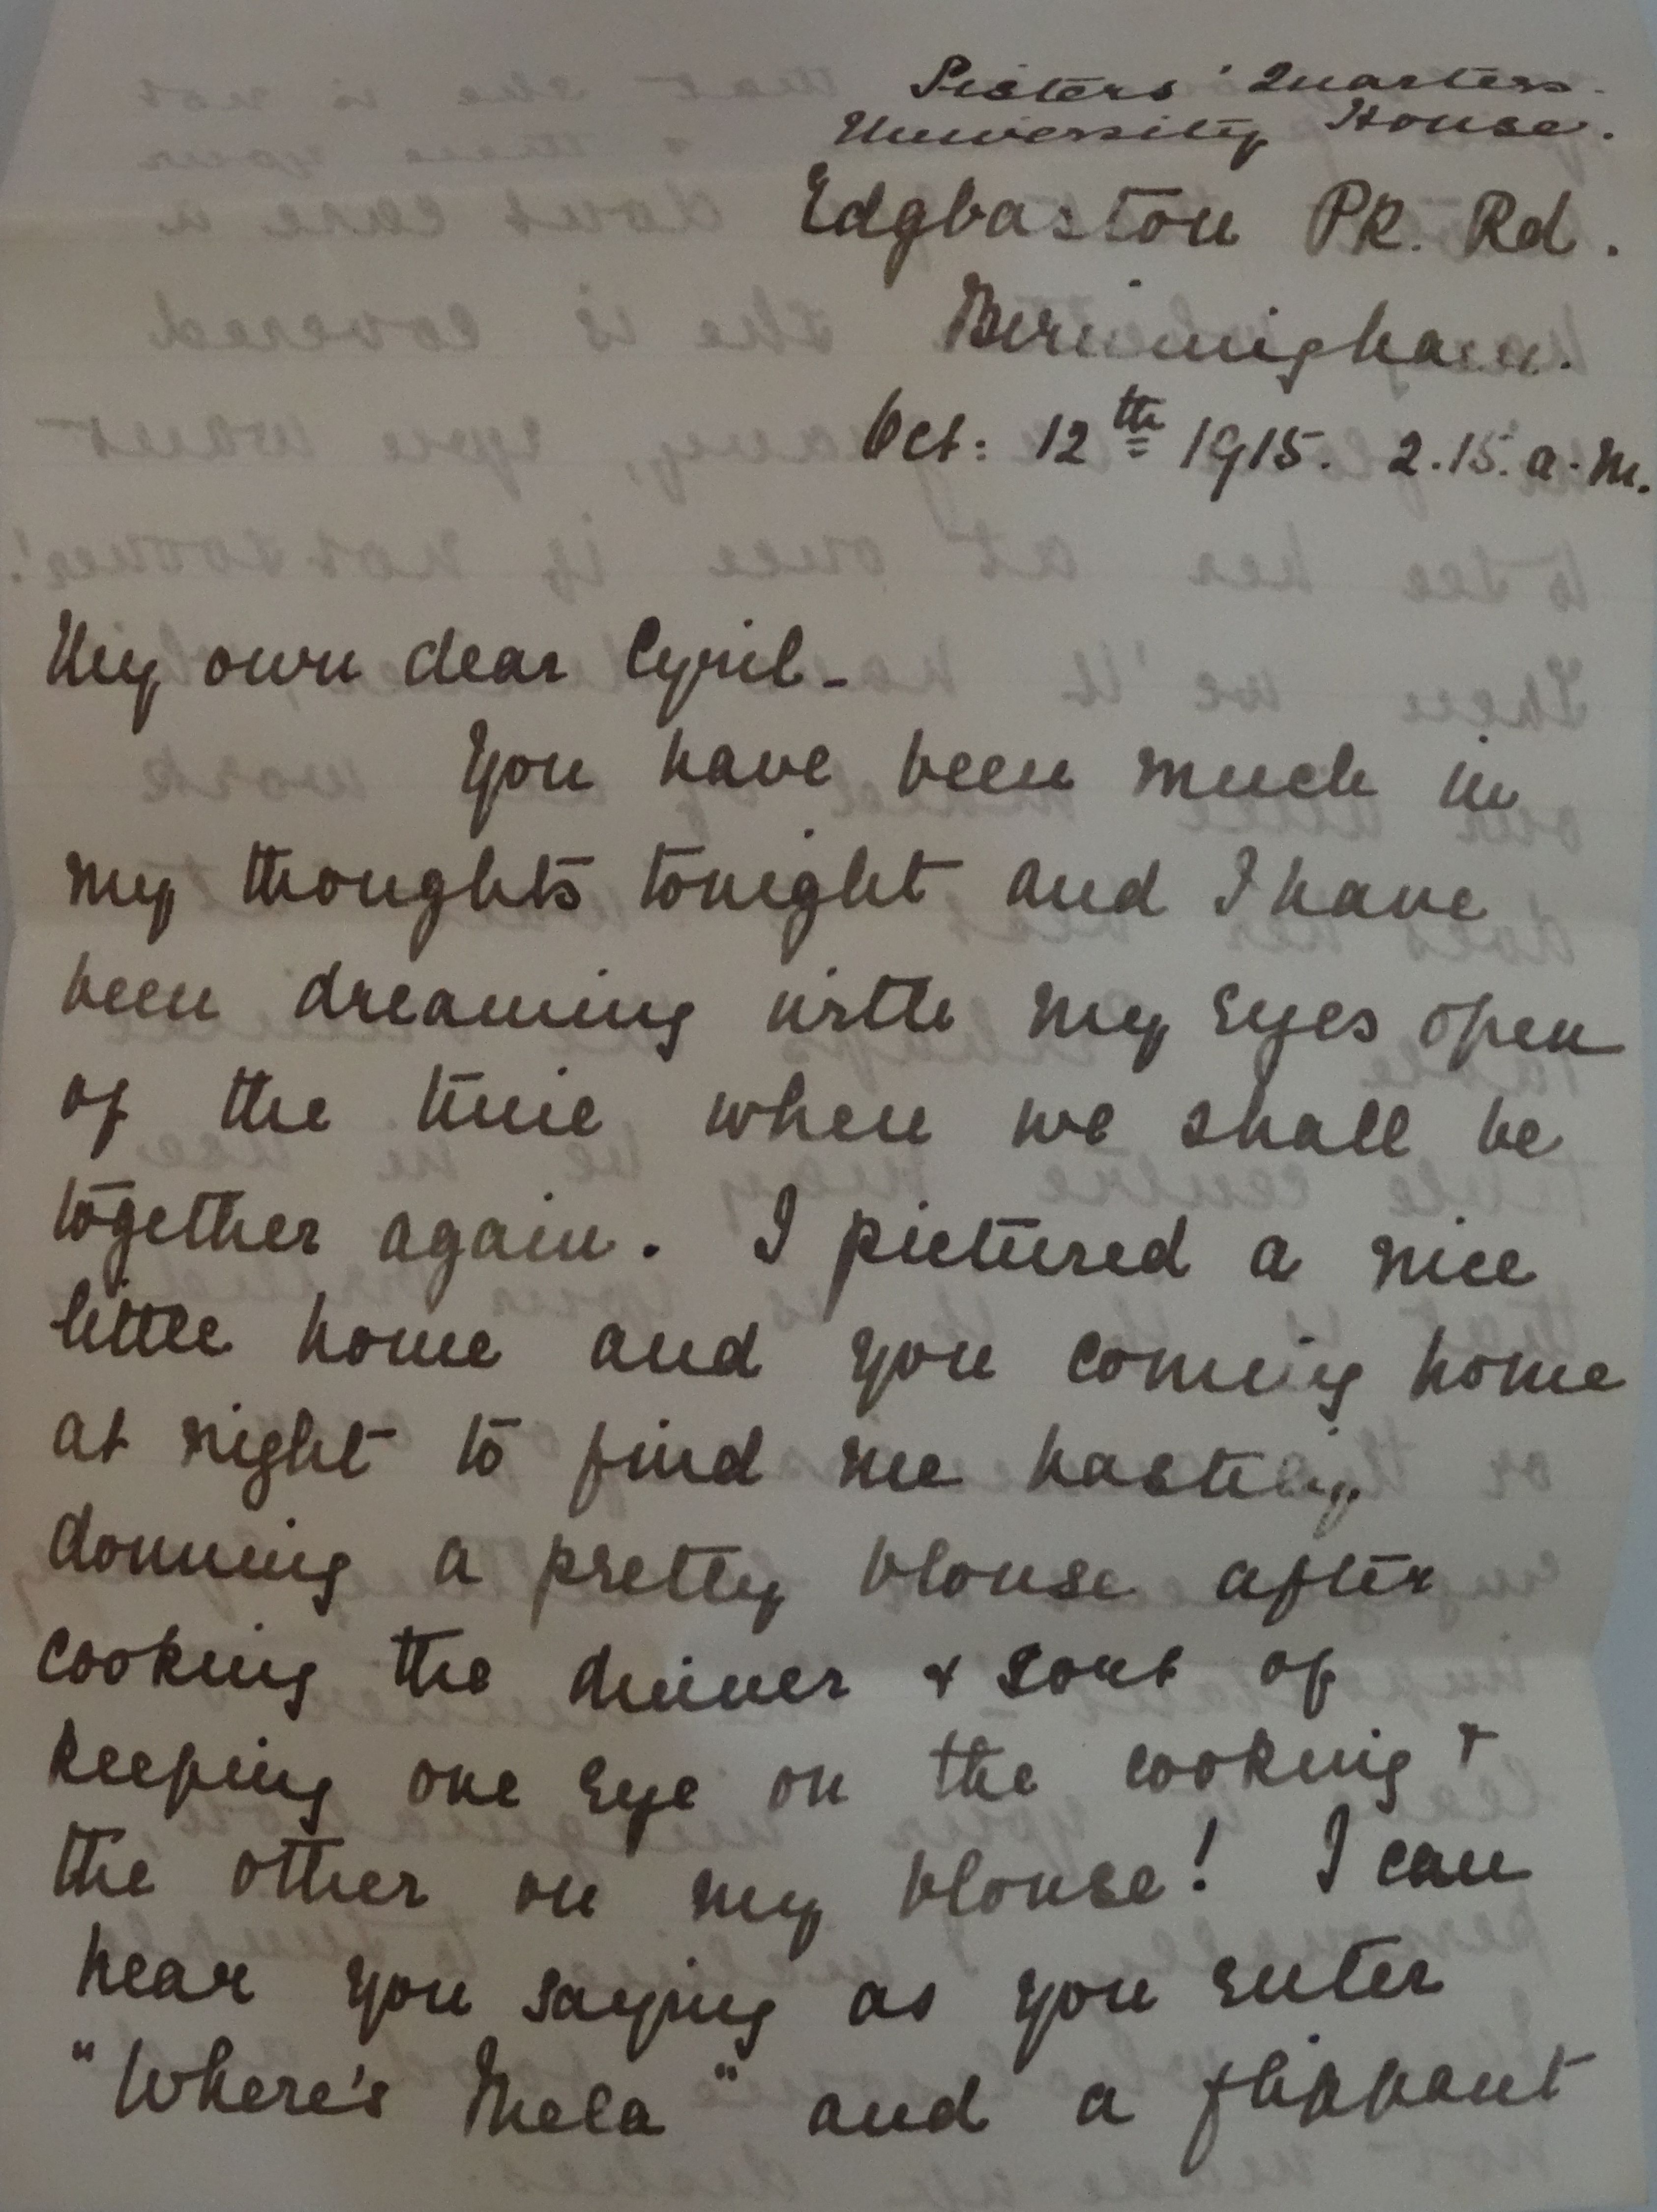 Sisters' Quarters.
University House.
Edgbaston Pk. Rd.
Birmingham.
Oct: 12th 1915. 2.15. a.m.
My own dear Cyril -
You have been much in
my thoughts tonight and I have
been dreaming with my eyes open
of the time when we shall be
together again. I pictured a nice
little home and you coming home
at night to find me hastily
donning a pretty blouse after
cooking the dinner & sort of
keeping one eye on the cooking &
the other on my blouse! I can
hear you saying as you enter
"Where's Mela" and a flippant